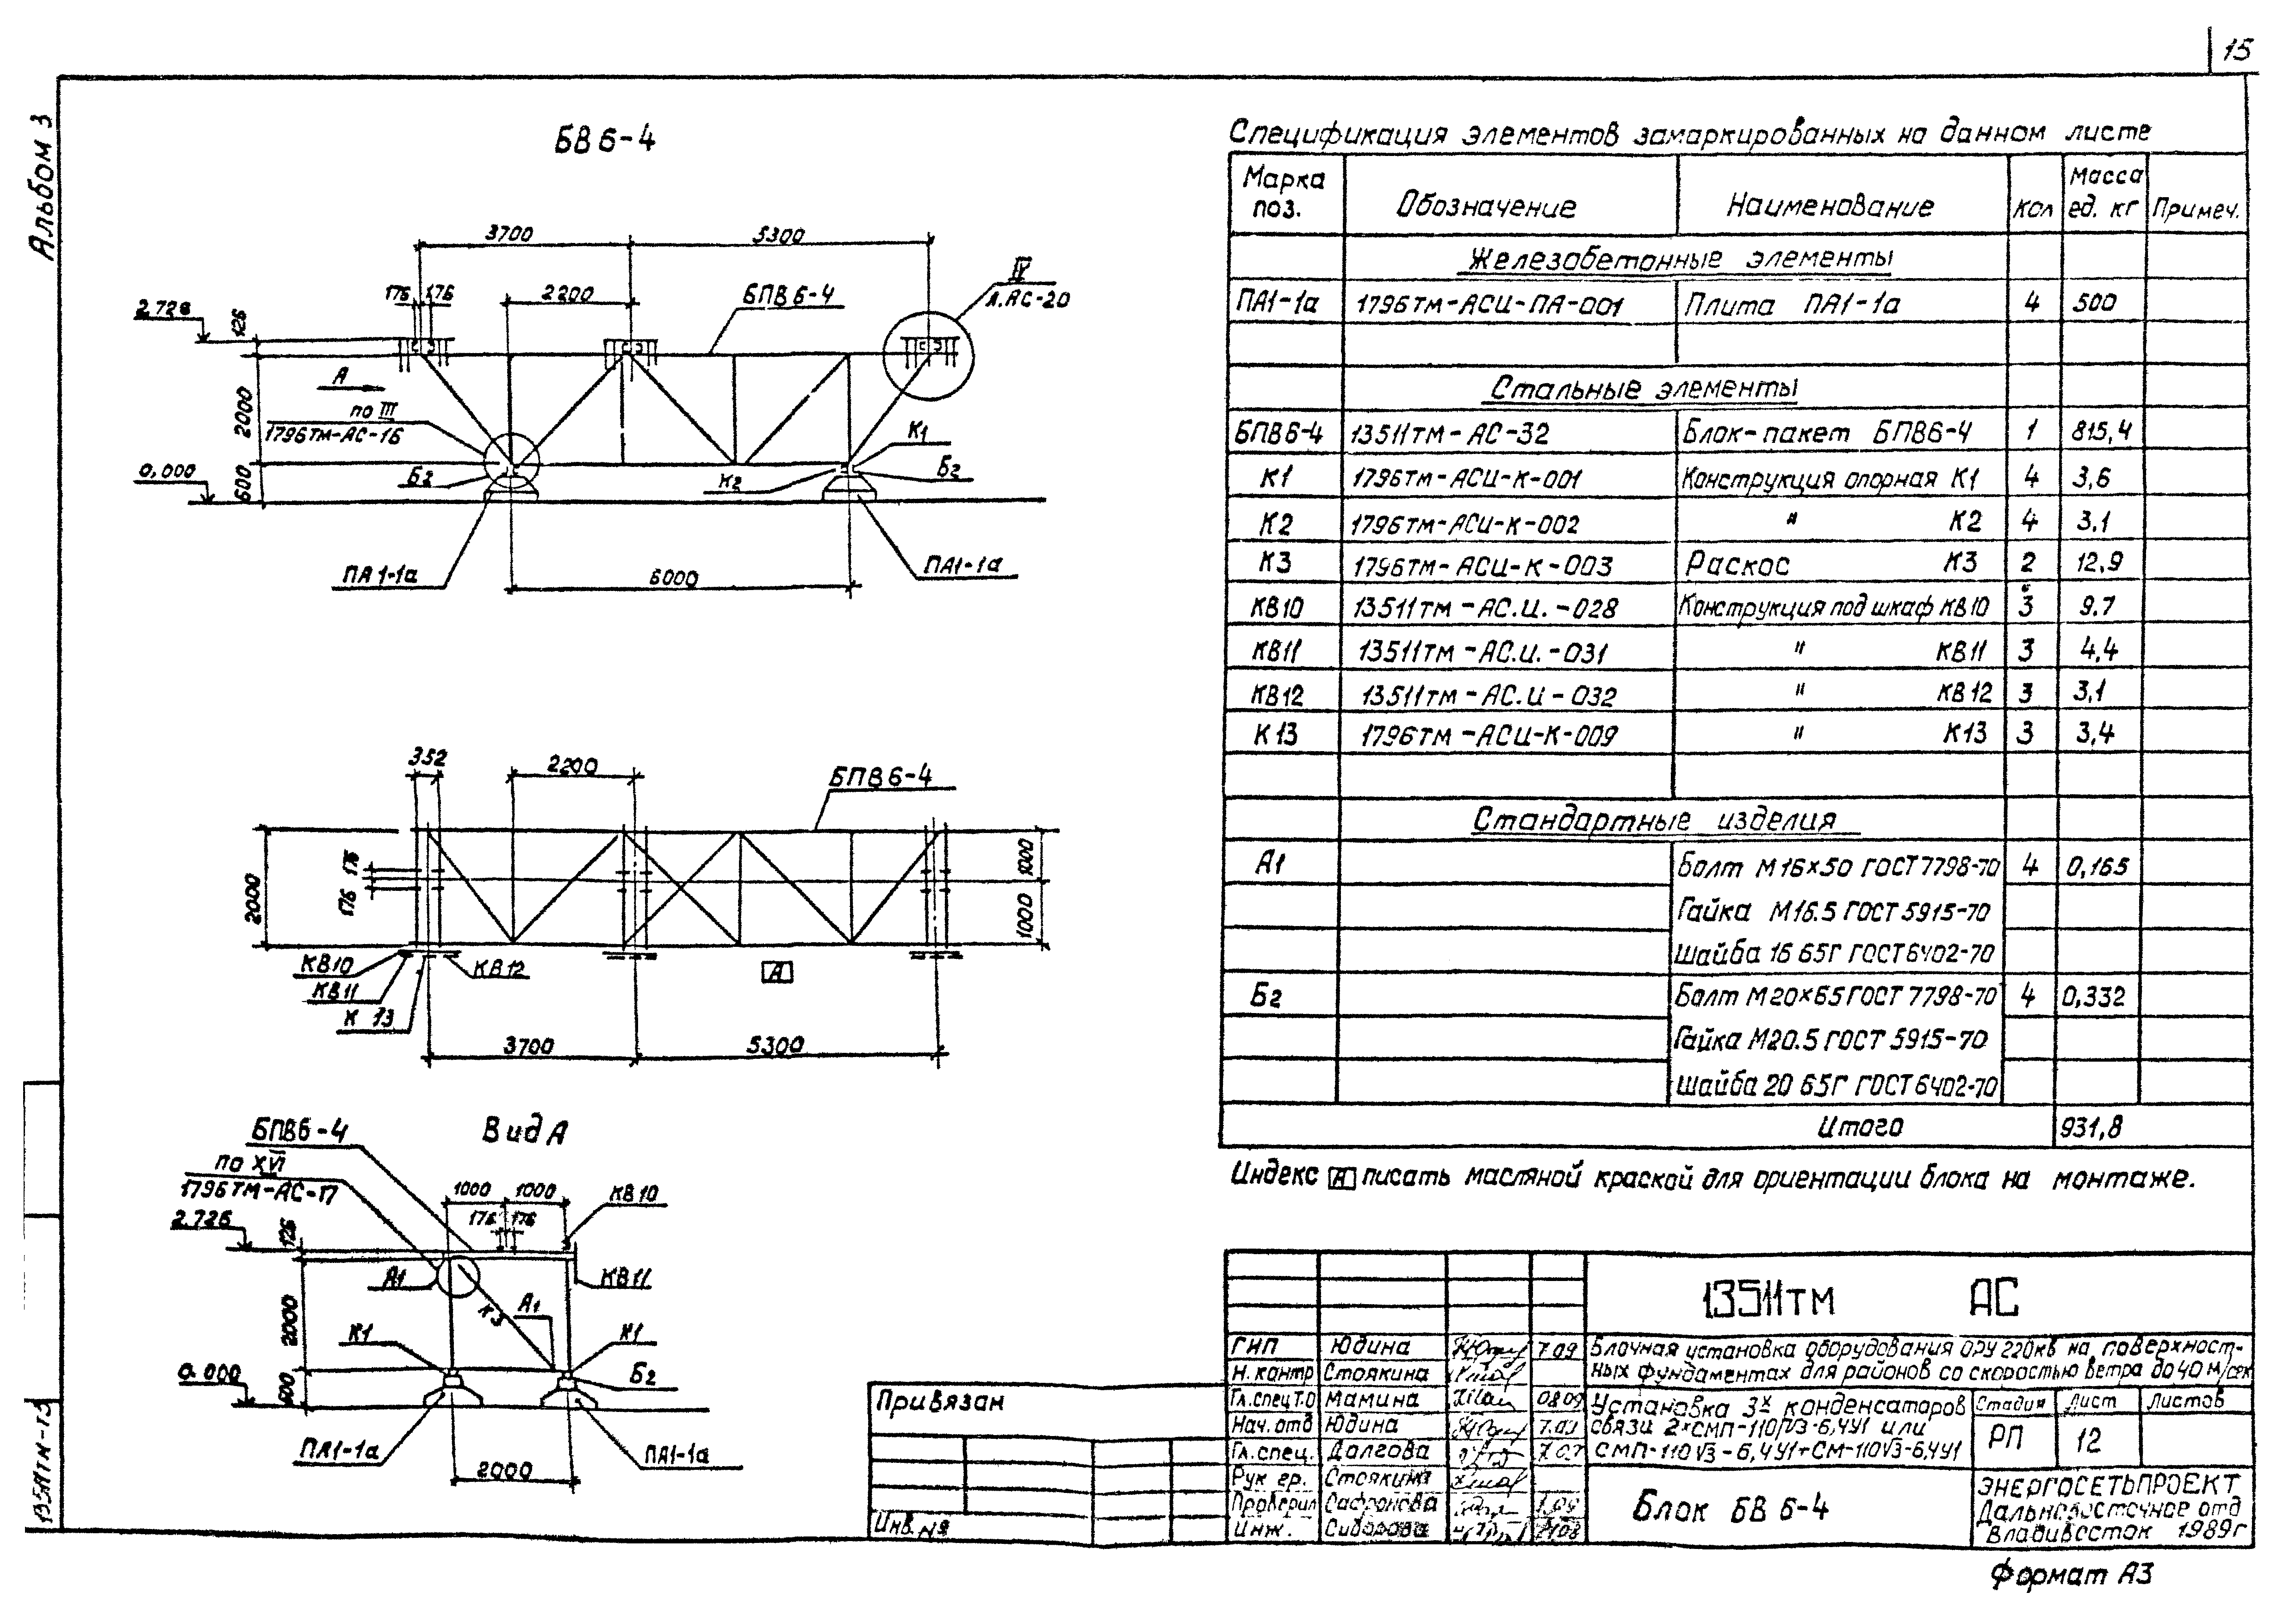 15
Альбом 3
БВ 6-4
3700
5300
176
176
2200
БПВ 6-4
IV
Л.АС-20
2.726
126
А
2000
по III
1796ТМ-АС-16
0,000
600
Б2
К2
К1
Б2
ПА1-1а
6000
ПА1-1а
352
2200
БПВ 6-4
2000
176
176
1000
1000
КВ10
КВ11
К 13
КВ12
А
3700
5300
Вид А
БПВ6-4
по XVI
1796ТМ-АС-17
1000
1000
КВ10
176
176
2.726
126
А1
КВ11
К3
А1
2000
К1
К1
Б2
0.000
600
ПА1-1а
ПА1-1а
2000
Спецификация элементов замаркированных на данном листе
Марка поз. Обозначение Наименование Кол Масса ед. кг Примеч.
Железобетонные элементы
ПА1-1а 1796ТМ-АСИ-ПА-001 Плита ПА1-1а 4 500
Стальные элементы
БПВ6-4 13511ТМ-АС-32 Блок-пакет БПВ6-4 1 815,4
К1 1796ТМ-АСИ-К-001 Конструкция опорная К1 4 3,6
К2 1796ТМ-АСИ-К-002 " К2 4 3.1
К3 1796ТМ-АСИ-К-003 Раскос К3 2 12,9
КВ10 13511ТМ-АС.И.-028 Конструкция под шкаф КВ10 3 9.7
КВ11 13511ТМ-АС.И.-031 " КВ11 3 4,4
КВ12 13511ТМ-АС.И-032 " КВ12 3 3,1
К13 1796ТМ-АСИ-К-009 " К13 3 3,4
Стандартные изделия
А1 Болт М16×50 ГОСТ 7798-70 4 0,165
Гайка М16.5 ГОСТ 5915-70
Шайба 16 65Г ГОСТ 6402-70
Б2 Болт М20×65 ГОСТ 7798-70 4 0,332
Гайка М20.5 ГОСТ 5915-70
Шайба 20 65Г ГОСТ 6402-70
Итого 931,8
Индекс А писать масляной краской для ориентации блока на монтаже.
13511ТМ АС
ГИП Юдина 7.09
Н. контр Стоякина
Гл.спец Т.О Мамина 08.09
Нач. отд Юдина 7.09
Гл. спец. Долгова
Рук гр. Стоякина
Проверил Сафронова
Инж. Сидорова
Блочная установка оборудования ОРУ 220кв на поверхност-
ных фундаментах для районов со скоростью ветра до 40 м/сек
Установка 3х конденсаторов
связи 2×СМП-110/√3-6,4У1 или
СМП-110√3-6,4У1+СМ-110√3-6,4У1
Стадия Лист Листов
РП 12
Блок БВ 6-4
ЭНЕРГОСЕТЬПРОЕКТ
Дальневосточное отд
Владивосток 1989г
Привязан
Инв. №
Формат А3